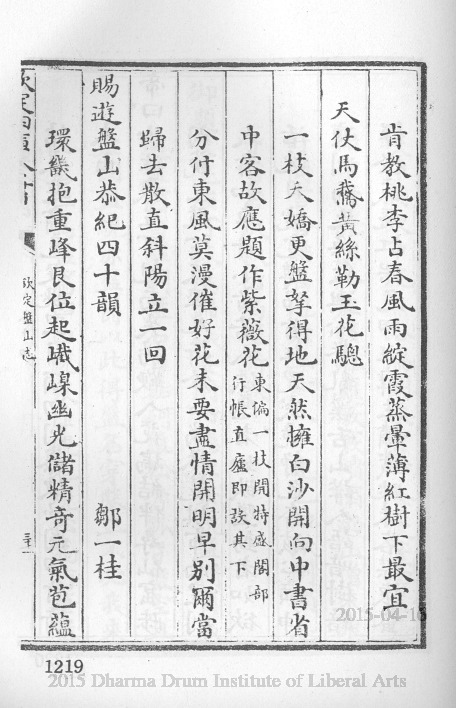 肯教桃李占春風雨綻霞蒸暈薄紅樹下最宜
天仗馬鵞黃絲勒玉花驄
一枝夭嬌更盤拏得地天然擁白沙開向中書省
中客故應題作紫薇花東偏一枝開特盛閣部
行帳直廬即設其下
分付東風莫漫催好花未要盡情開明早別爾當
歸去散直斜陽立一回
賜遊盤山恭紀四十韻
鄒一桂
環畿抱重峰艮位起嶬嵲幽光儲精奇元氣苞蘊
欽定四庫全書
欽定盤山志
1219
2015-04-16
2015 Dharma Drum Institute of Liberal Arts